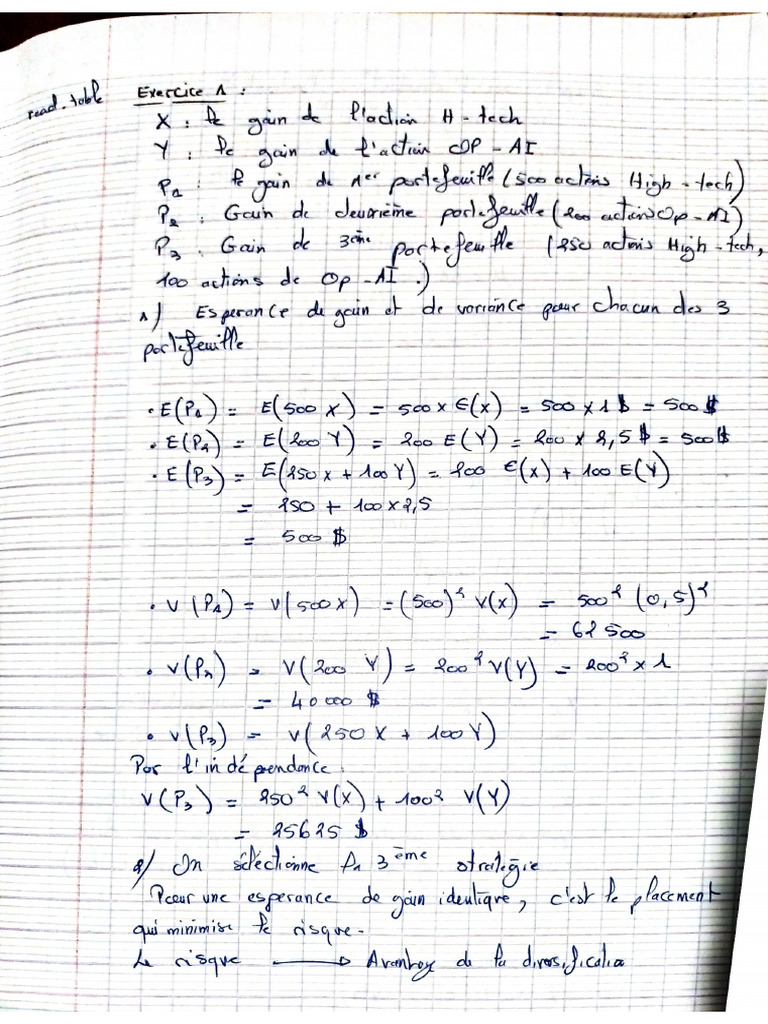 read.table
Exercice 1 :
X : le gain de l'action H-tech
Y : le gain de l'action OP-AI
P1 : le gain de 1er portefeuille (500 actions High-tech)
P2 : Gain de deuxième portefeuille (200 actions Op-AI)
P3 : Gain de 3ème portefeuille (250 actions High-tech,
100 actions de Op-AI.)
1) Esperance de gain et de variance pour chacun des 3
portefeuille
• E(P1) = E(500 X) = 500 x E(x) = 500 x 1 $ = 500 $
• E(P2) = E(200 Y) = 200 E(Y) = 200 x 2,5 $ = 500 $
• E(P3) = E(250 x + 100 Y) = 200 E(x) + 100 E(Y)
= 250 + 100 x 2,5
= 500 $
• V(P1) = V(500 X) = (500)² V(X) = 500² (0,5)²
= 62 500
• V(P2) = V(200 Y) = 200² V(Y) = 200² x 1
= 40 000 $
• V(P3) = V(250 X + 100 Y)
Par l'indépendance :
V(P3) = 250² V(X) + 100² V(Y)
= 25625 $
2) On séléctionne la 3ème stratégie
Pour une esperance de gain identique, c'est le placement
qui minimise le risque.
Le risque → Avantage de la diversification